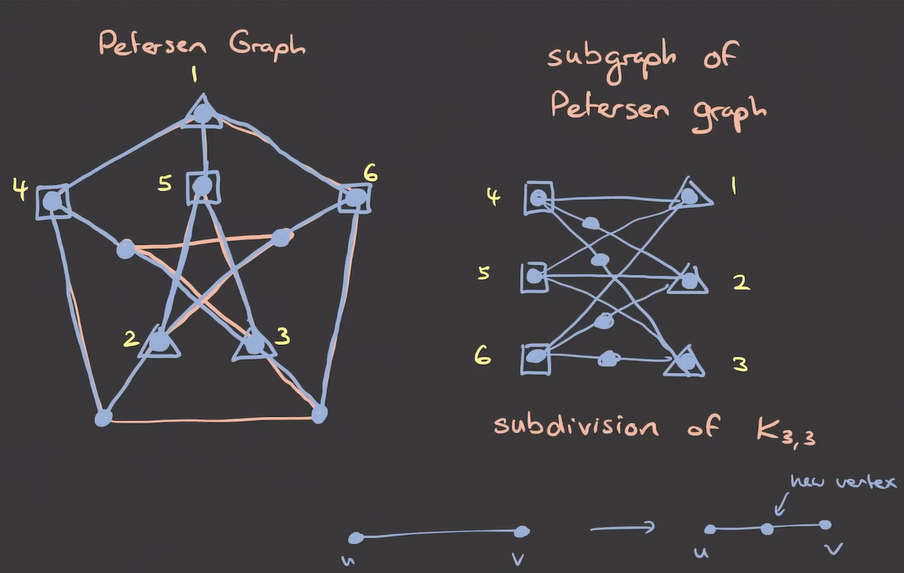 Petersen Graph
1
4
5
6
2
3
subgraph of
Petersen graph
4
1
5
2
6
3
subdivision of K3,3
new vertex
u
v
u
v